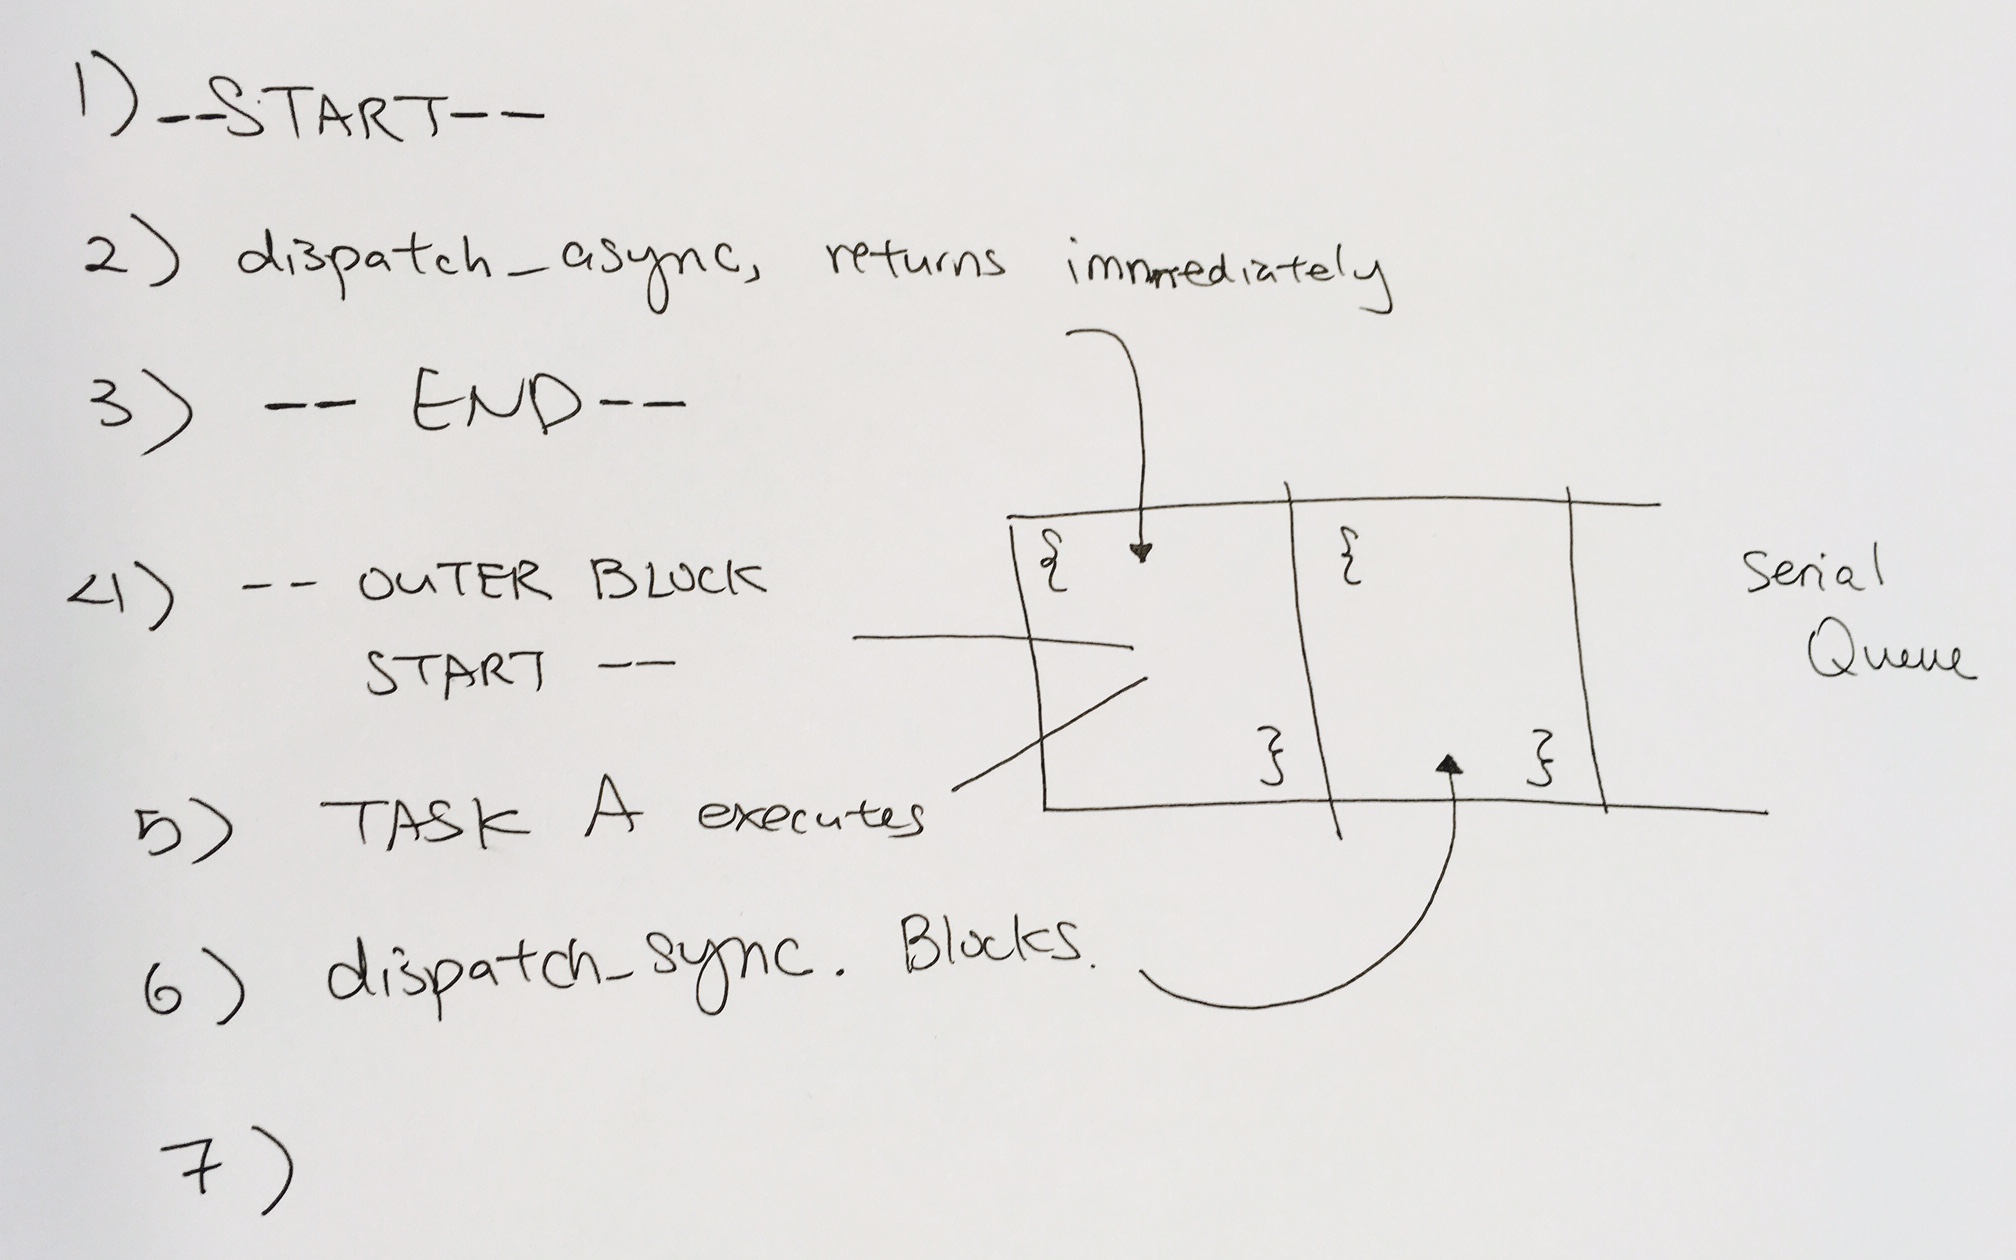 1) --START--
2) dispatch_async, returns immediately
3) -- END--
4) -- OUTER BLOCK
START --
{ }
{ }
Serial
Queue
5) TASK A executes
6) dispatch_sync. Blocks.
7)